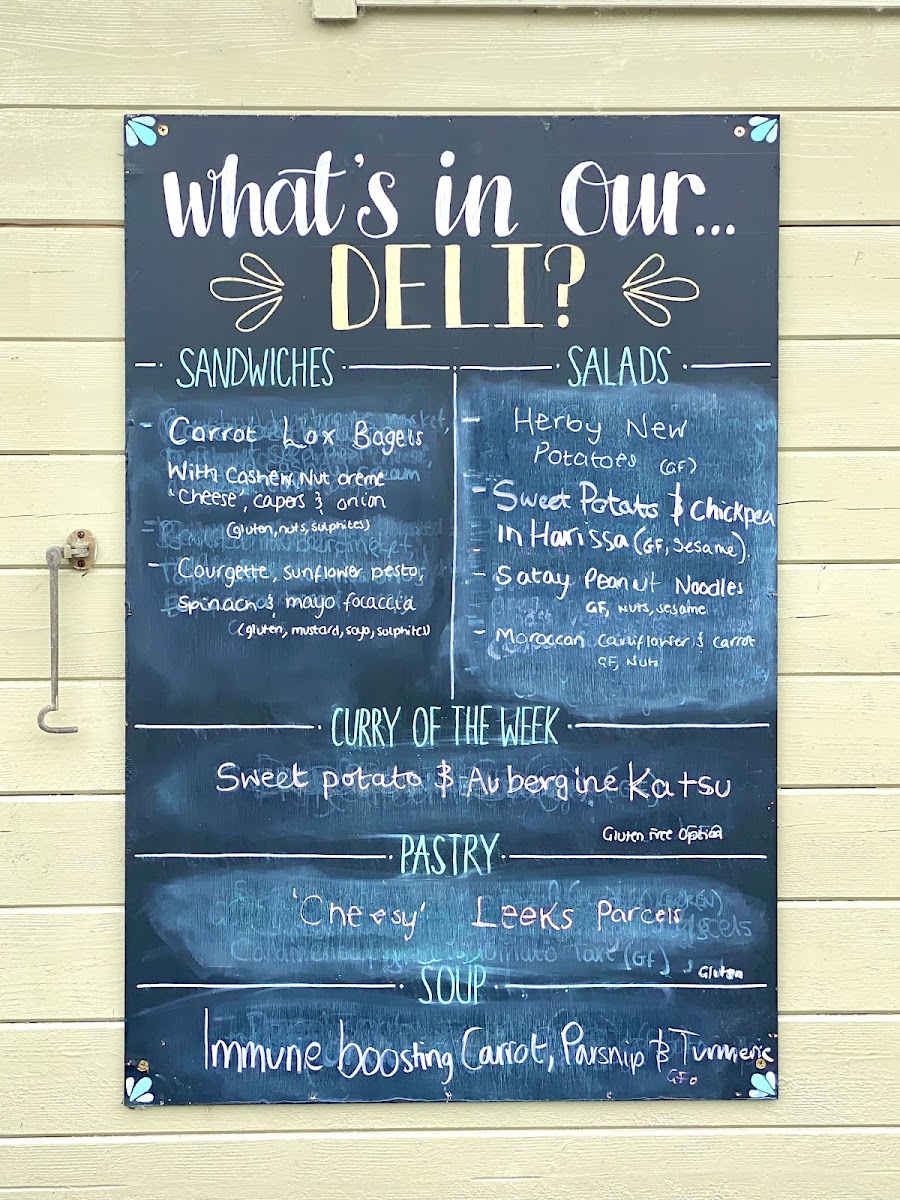 What's in our...
DELI?
SANDWICHES
- Carrot Lox Bagels
With Cashew Nut creme
'Cheese', capers & onion
(gluten, nuts, sulphites)
- Courgette, sunflower pesto,
Spinach & mayo focaccia
(gluten, mustard, soya, sulphites)
SALADS
- Herby New
Potatoes (GF)
- Sweet Potato & Chickpea
in Harissa (GF, Sesame).
- Satay Peanut Noodles
GF, Nuts, sesame
- Moroccan cauliflower & carrot
GF, Nuts
CURRY OF THE WEEK
Sweet potato & Aubergine Katsu
Gluten Free Option
PASTRY
'Cheesy' Leeks Parcels
Gluten
SOUP
Immune boosting Carrot, Parsnip & Turmeric
GF